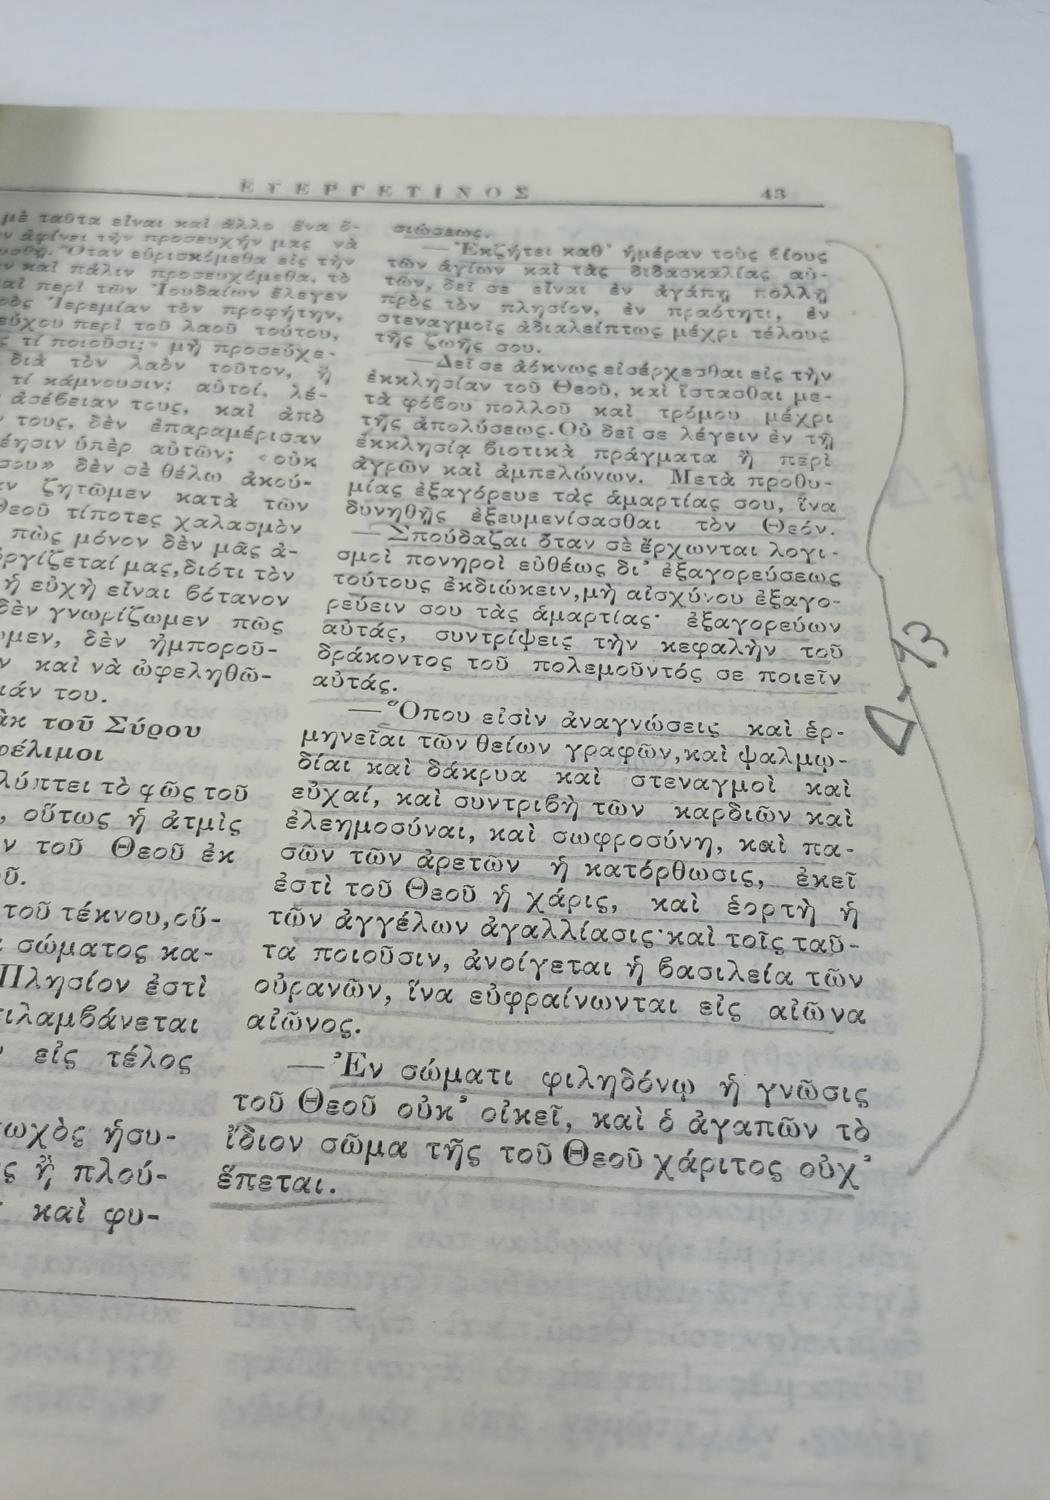 ΕΥΕΡΓΕΤΙΝΟΣ 43
μὲ ταῦτα εἶναι καὶ ἄλλο ἕνα ὅ-
ἀφίνει τὴν προσευχήν μας νὰ
Ὅταν εὑρισκόμεθα εἰς τὴν
καὶ πάλιν προσευχόμεθα, τὸ
περὶ τῶν Ἰουδαίων ἔλεγεν
Ἰερεμίαν τὸν προφήτην,
εύχου περὶ τοῦ λαοῦ τούτου,
τί ποιοῦσι;» μὴ προσεύχε-
διὰ τὸν λαὸν τοῦτον, ἢ
τί κάμνουσιν; αὐτοί, λέ-
ἀσέβειαν τους, καὶ ἀπὸ
τους, δὲν ἐπαραμέρισαν
έησιν ὑπὲρ αὐτῶν; «οὐκ
σου» δὲν σὲ θέλω ἀκού-
ν ζητῶμεν κατὰ τῶν
Θεοῦ τίποτες χαλασμὸν
πὼς μόνον δὲν μᾶς ἀ-
ργίζεταί μας, διότι τὸν
ἡ εὐχὴ εἶναι βότανον
δὲν γνωρίζωμεν πῶς
ωμεν, δὲν ἠμποροῦ-
ν καὶ νὰ ὠφεληθῶ-
ιάν του.
ὰκ τοῦ Σύρου
φέλιμοι
λύπτει τὸ φῶς τοῦ
, οὕτως ἡ ἀτμὶς
ν τοῦ Θεοῦ ἐκ
οῦ.
τοῦ τέκνου, οὕ-
σώματος κα-
Πλησίον ἐστὶ
τιλαμβάνεται
εἰς τέλος
τωχὸς ἡσυ-
ς ἢ πλού-
καὶ φυ-
σιώσεως.
— Ἐκζήτει καθ' ἡμέραν τοὺς βίους
τῶν ἁγίων καὶ τὰς διδασκαλίας αὐ-
τῶν, δεῖ σε εἶναι ἐν ἀγάπῃ πολλῇ
πρὸς τὸν πλησίον, ἐν πραότητι, ἐν
στεναγμοῖς ἀδιαλείπτως μέχρι τέλους
τῆς ζωῆς σου.
—Δεῖ σε ἀόκνως εἰσέρχεσθαι εἰς τὴν
ἐκκλησίαν τοῦ Θεοῦ, καὶ ἵστασθαι με-
τὰ φόβου πολλοῦ καὶ τρόμου μέχρι
τῆς ἀπολύσεως. Οὐ δεῖ σε λέγειν ἐν τῇ
ἐκκλησίᾳ βιοτικὰ πράγματα ἢ περὶ
ἀγρῶν καὶ ἀμπελώνων. Μετὰ προθυ-
μίας ἐξαγόρευε τὰς ἁμαρτίας σου, ἵνα
δυνηθῇς ἐξευμενίσασθαι τὸν Θεόν.
— Σπούδαζαι ὅταν σὲ ἔρχωνται λογι-
σμοὶ πονηροὶ εὐθέως δι' ἐξαγορεύσεως
τούτους ἐκδιώκειν, μὴ αἰσχύνου ἐξαγο-
ρεύειν σου τὰς ἁμαρτίας· ἐξαγορεύων
αὐτάς, συντρίψεις τὴν κεφαλὴν τοῦ
δράκοντος τοῦ πολεμοῦντός σε ποιεῖν
αὐτάς.
— Ὅπου εἰσὶν ἀναγνώσεις καὶ ἑρ-
μηνεῖαι τῶν θείων γραφῶν, καὶ ψαλμῳ-
δίαι καὶ δάκρυα καὶ στεναγμοὶ καὶ
εὐχαί, καὶ συντριβὴ τῶν καρδιῶν καὶ
ἐλεημοσύναι, καὶ σωφροσύνη, καὶ πα-
σῶν τῶν ἀρετῶν ἡ κατόρθωσις, ἐκεῖ
ἐστὶ τοῦ Θεοῦ ἡ χάρις, καὶ ἑορτὴ ἡ
τῶν ἀγγέλων ἀγαλλίασις· καὶ τοῖς ταῦ-
τα ποιοῦσιν, ἀνοίγεται ἡ βασιλεία τῶν
οὐρανῶν, ἵνα εὐφραίνωνται εἰς αἰῶνα
αἰῶνος.
— Ἐν σώματι φιληδόνῳ ἡ γνῶσις
τοῦ Θεοῦ οὐκ' οἰκεῖ, καὶ ὁ ἀγαπῶν τὸ
ἴδιον σῶμα τῆς τοῦ Θεοῦ χάριτος οὐχ'
ἕπεται.